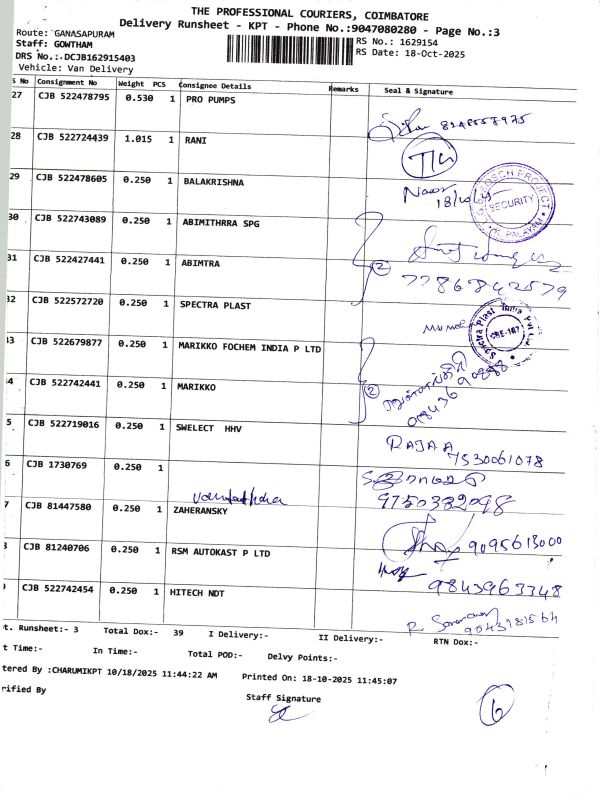 THE PROFESSIONAL COURIERS, COIMBATORE
Delivery Runsheet - KPT - Phone No.:9047080280 - Page No.:3
Route: GANASAPURAM
Staff: GOWTHAM
DRS No.:.DCJB162915403
Vehicle: Van Delivery
RS No.: 1629154
RS Date: 18-Oct-2025
S No Consignment No Weight PCS Consignee Details Remarks Seal & Signature
27 CJB 522478795 0.530 1 PRO PUMPS 8248558975
28 CJB 522724439 1.015 1 RANI
29 CJB 522478605 0.250 1 BALAKRISHNA
BOSCH PROJECT
SECURITY
K. PALAYAM
30 CJB 522743089 0.250 1 ABIMITHRRA SPG
31 CJB 522427441 0.250 1 ABIMTRA 2 7786842579
32 CJB 522572720 0.250 1 SPECTRA PLAST
Spectra Plast India Pvt Ltd
CBE-107
33 CJB 522679877 0.250 1 MARIKKO FOCHEM INDIA P LTD
4 CJB 522742441 0.250 1 MARIKKO 2
5 CJB 522719016 0.250 1 SWELECT HHV RAJA A
7530061078
6 CJB 1730769 0.250 1
9750382098
7 CJB 81447580 0.250 1 ZAHERANSKY
CJB 81240706 0.250 1 RSM AUTOKAST P LTD 9095613000
9843963348
CJB 522742454 0.250 1 HITECH NDT
t. Runsheet:- 3 Total Dox:- 39 I Delivery:- II Delivery:- RTN Dox:-
t Time:- In Time:- Total POD:- Delvy Points:-
tered By :CHARUMIKPT 10/18/2025 11:44:22 AM Printed On: 18-10-2025 11:45:07
rified By Staff Signature
6